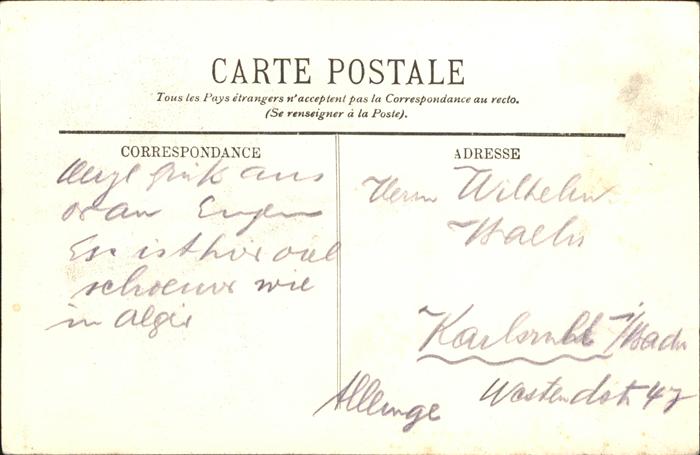 CARTE POSTALE
Tous les Pays étrangers n'acceptent pas la Correspondance au recto.
(Se renseigner à la Poste).
CORRESPONDANCE
aus
Oran Eugen
Es ist hier viel
schoener wie
in Algier
ADRESSE
Herrn Wilhelm
Karlsruhe i/Baden
Westendstr 47